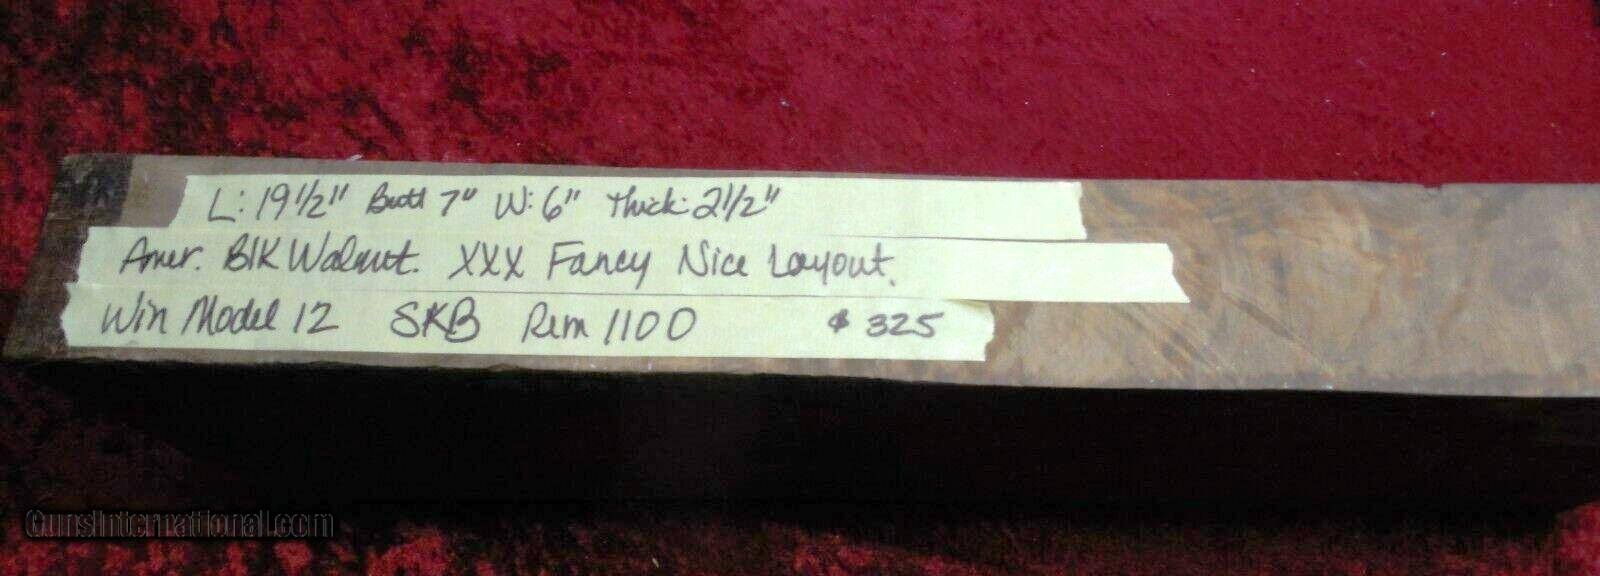 L: 19 1/2" Butt 7" W: 6" Thick: 2 1/2"
Amer. Blk Walnut. XXX Fancy Nice Layout.
Win Model 12 SKB Rem 1100 $325
GunsInternational.com